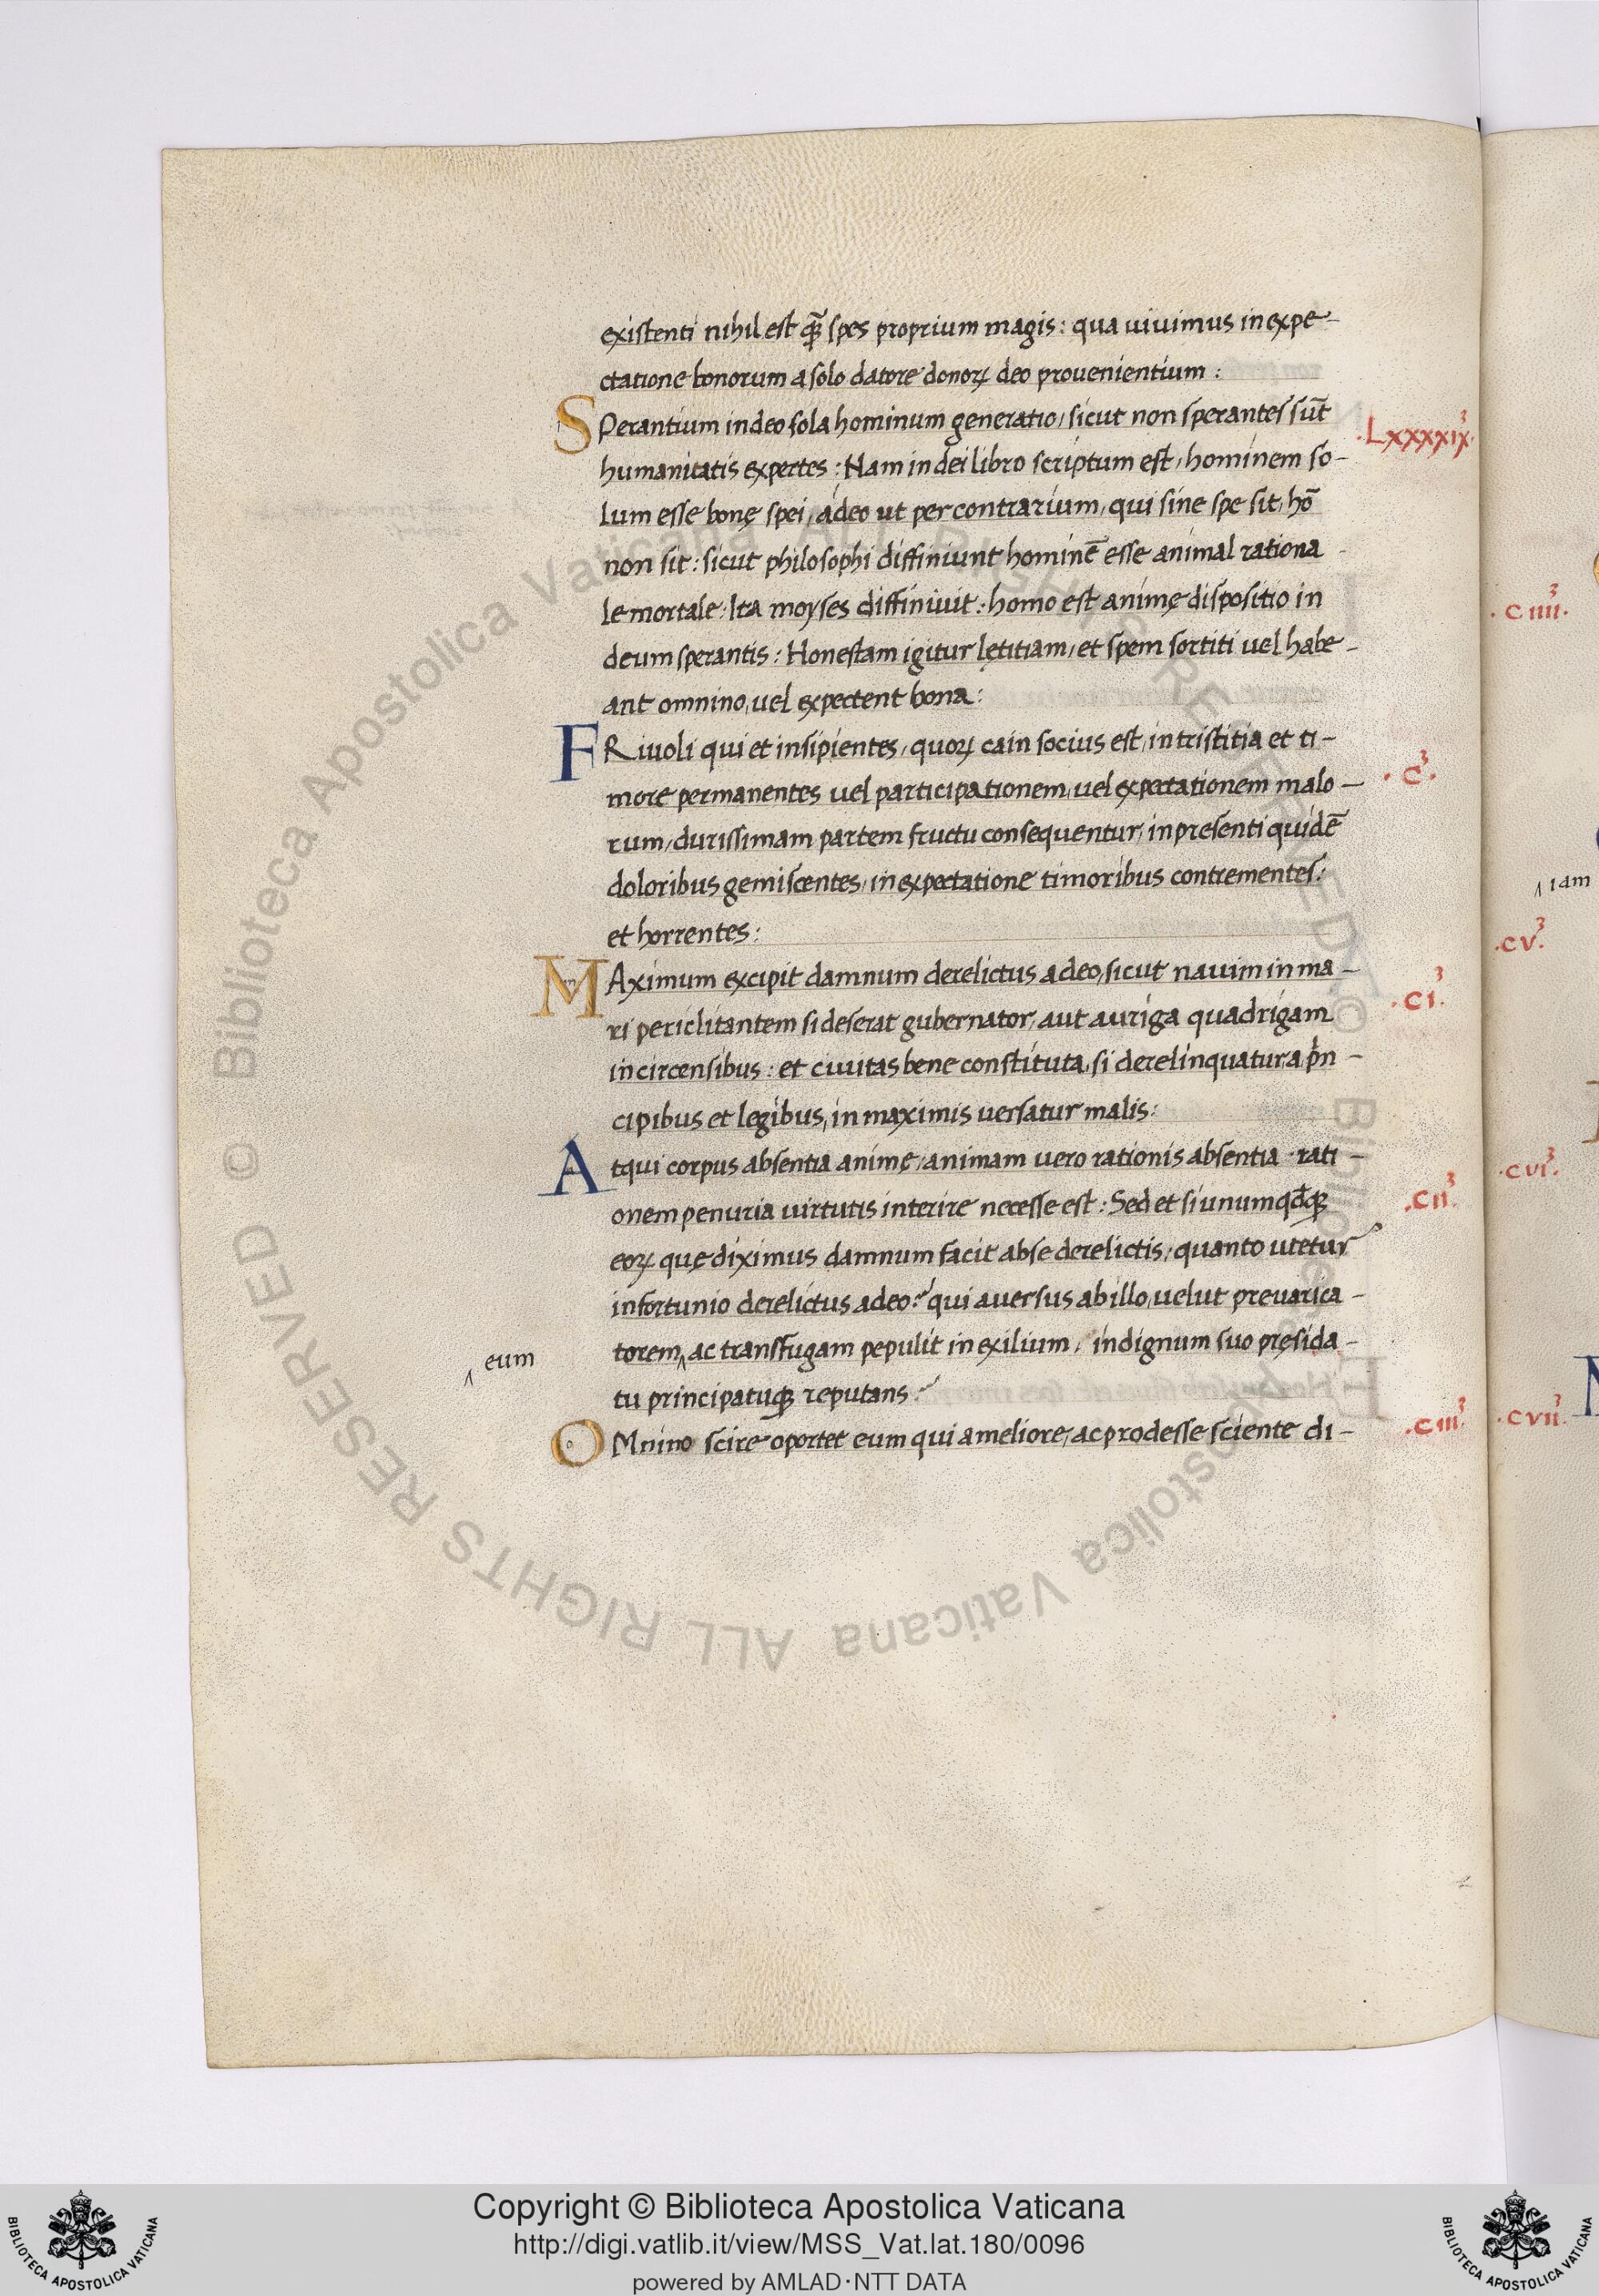 existenti nihil est qȝ̃ spes proprium magis: qua uiuimus in expe-
ctatione bonorum a solo datore donoꝝ deo prouenientium:
SPerantium in deo sola hominum generatio, sicut non sperantes sūt
.Lxxxxix³.
humanitatis expertes: Nam in dei libro scriptum est, hominem so-
lum esse bonę spei, adeo ut per contrarium, qui sine spe sit, hō
non sit: sicut philosophi diffiniunt hominē esse animal rationa-
le mortale: Ita moyses diffiniuit: homo est animę dispositio in
deum sperantis: Honestam igitur lętitiam, et spem sortiti uel habe-
ant omnino, uel expectent bona:
FRiuoli qui et insipientes, quoꝝ cain socius est, in tristitia et ti-
.c³.
more permanentes uel participationem, uel expectationem malo-
rum, durissimam partem fructu consequentur, in presenti quidē
doloribus gemiscentes, in expectatione timoribus contrementes:
et horrentes:
MAximum excipit damnum derelictus a deo, sicut nauim in ma-
.ci³.
ri periclitantem si deserat gubernator, aut auriga quadrigam
in circensibus: et ciuitas bene constituta, si derelinquatur a pͥn-
cipibus et legibus, in maximis uersatur malis:
Atqui corpus absentia animę, animam uero rationis absentia rati-
onem penuria uirtutis interire necesse est: Sed et si unumqđqȝ
.cii³.
eoꝝ quę diximus damnum facit ab se derelictis, quanto utetur
infortunio derelictus a deo? qui auersus ab illo, uelut preuarica-
torem, ac transfugam pepulit in exilium, indignum suo pręsida-
‸ eum
tu principatuqȝ reputans?
OMnino scire oportet eum qui a meliore, ac prodesse sciente di-
.ciii³.
.ciiii³.
‸ iam
.cv³.
.cvi³.
.cvii³.
Copyright © Biblioteca Apostolica Vaticana
http://digi.vatlib.it/view/MSS_Vat.lat.180/0096
powered by AMLAD·NTT DATA
BIBLIOTECA APOSTOLICA VATICANA
BIBLIOTECA APOSTOLICA VATICANA
© Biblioteca Apostolica Vaticana ALL RIGHTS RESERVED
© Biblioteca Apostolica Vaticana ALL RIGHTS RESERVED